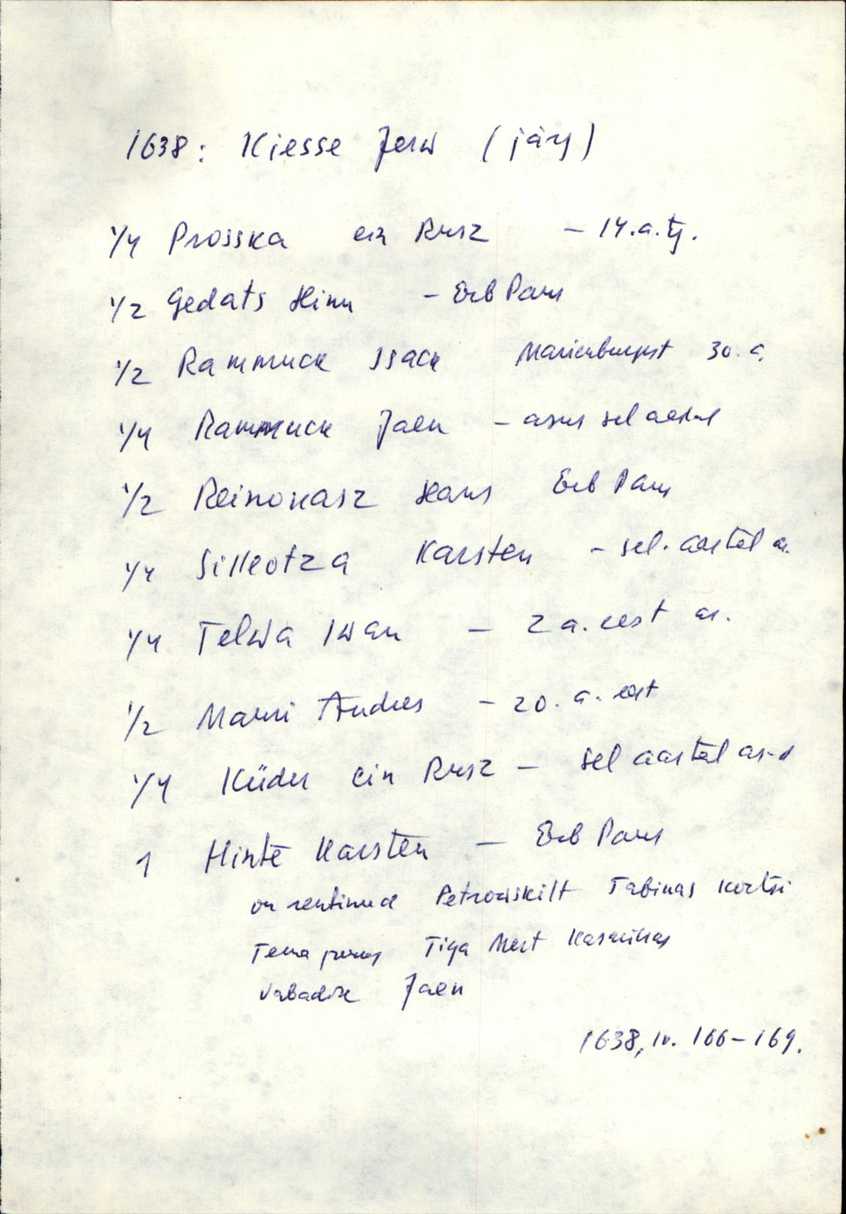 1638: Kiesse Jerw (järj)
1/4 Prosska ein Rusz - 14.a.tg.
1/2 Gedats Hinn - Erb Paur
1/2 Rammuck Isack Marienburgist 30. a.
1/4 Rammuck Jaen - asus sel aastal
1/2 Reinokasz Hans Erb Paur
1/4 Silleotza Karsten - sel. aastal as.
1/4 Telwa Iwan - 2 a. eest as.
1/2 Marri Andres - 20. a. eest
1/4 Küder ein Rusz - sel aastal as-d
1 Hinte Karsten - Erb Paur
on rentinud Petrowskilt Tabinas kõrtsi
Tema juures Tiga Mert
vabadik Jaen
1638, lv. 166-169.